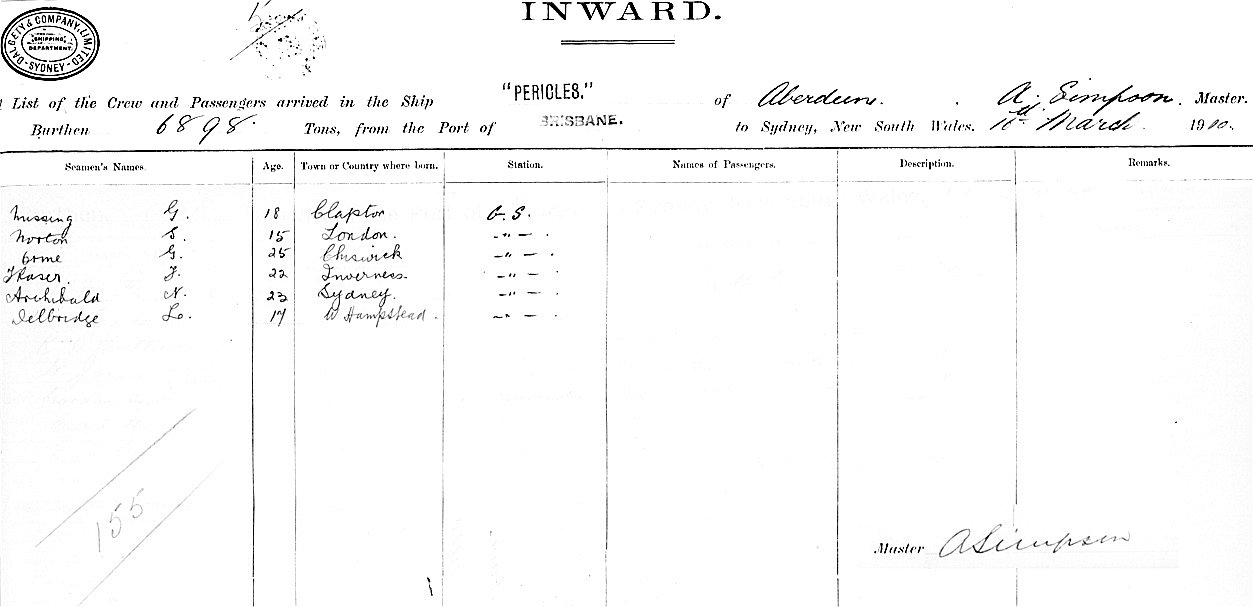 INWARD.
DALGETY & COMPANY, LIMITED
SHIPPING
DEPARTMENT
SYDNEY
5
List of the Crew and Passengers arrived in the Ship "PERICLES." of Aberdeen. A. Simpson. Master.
Burthen 6898. Tons, from the Port of BRISBANE. to Sydney, New South Wales. March. 1910.
Seamen's Names. Age. Town or Country where born. Station. Names of Passengers. Description. Remarks.
Missing G. 18 Clapton O.S.
Norton S. 15 London. -"- .
Orme G. 25 Chiswick -"- .
Fraser. J. 22 Inverness. -"- .
Archibald N. 23 Sydney. -"- .
Delbridge Le. 17 W Hampstead. -"- .
155
Master A Simpson